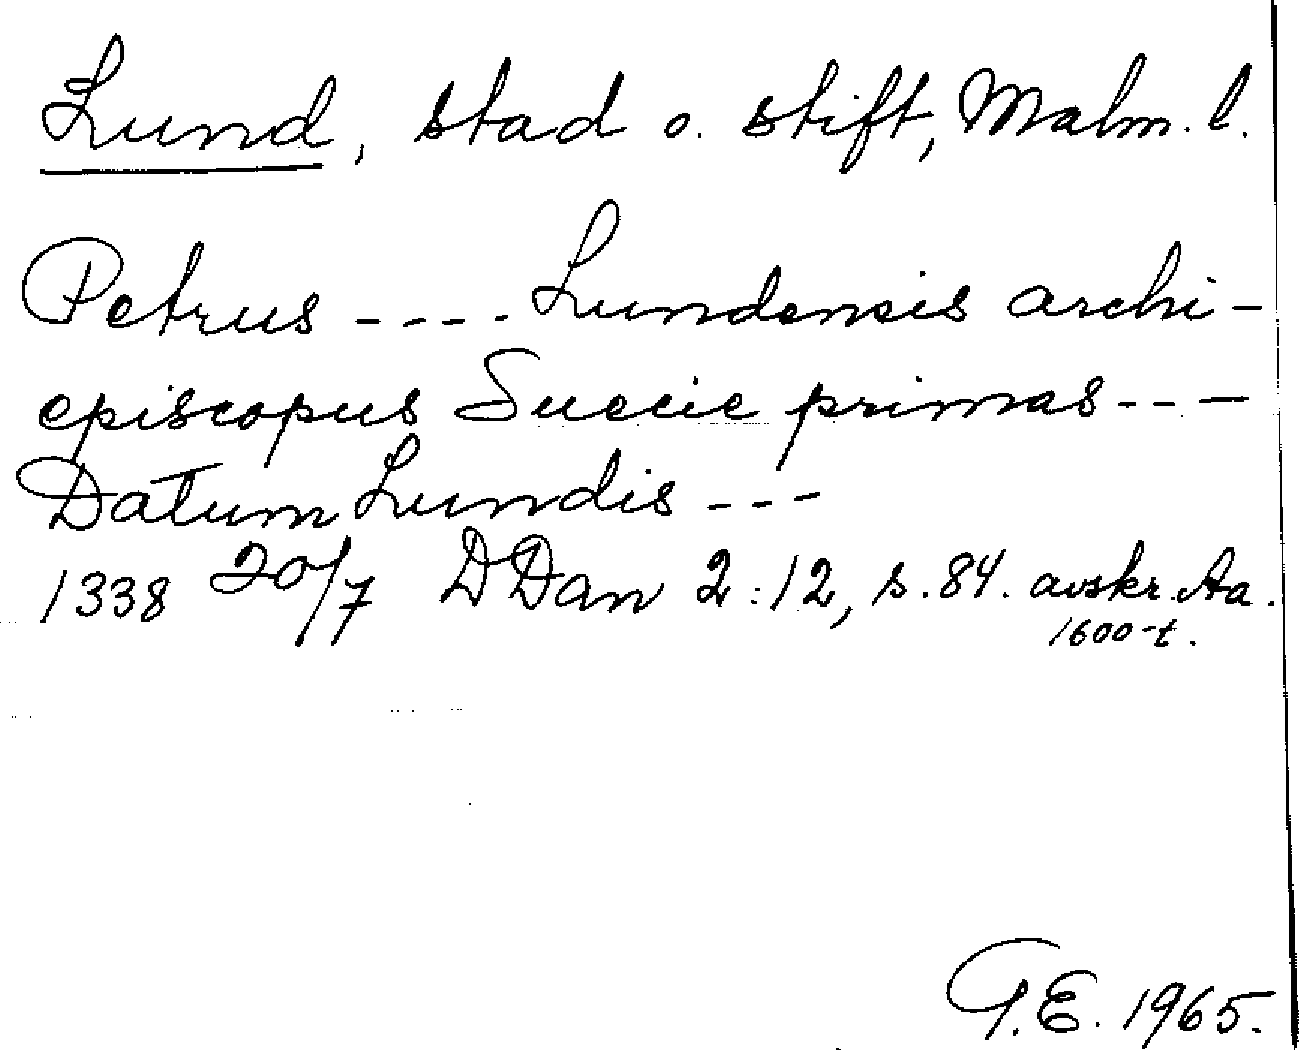 Lund, stad o. stift, Malm. l.
Petrus ---- Lundensis archi-
episcopus Suecie primas ---
Datum Lundis ---
1338 20/7 DDan 2:12, s. 84. avskr. Aa.
1600-t.
G.E. 1965.